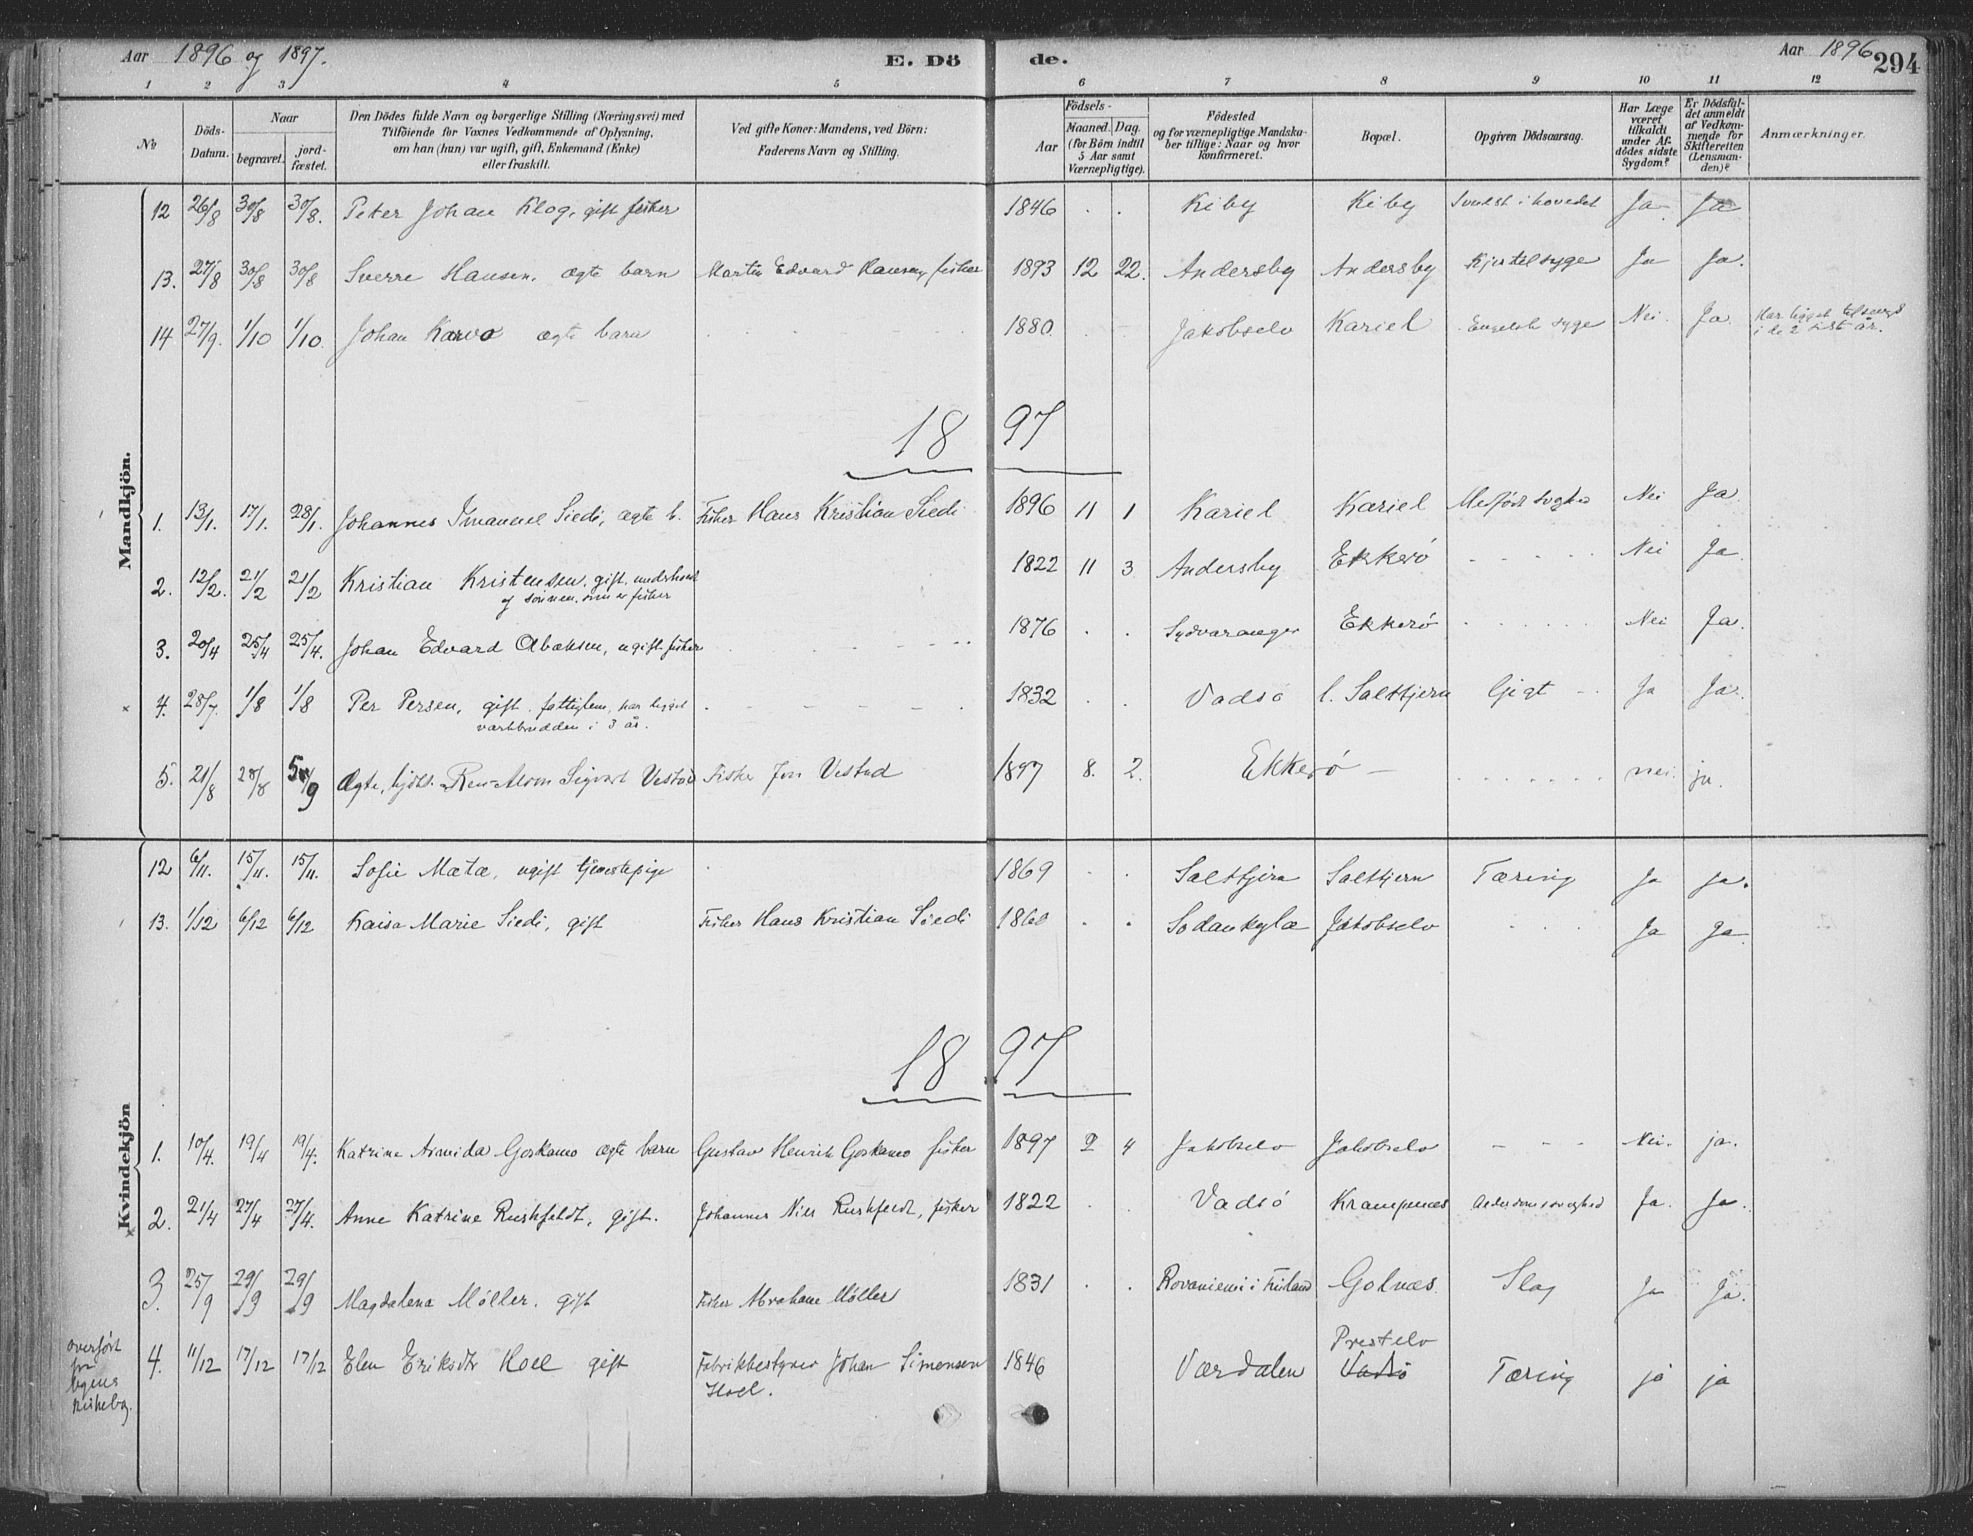 Aar 1896 og 1897. E. Dö de. Aar 1896 294
1 2 3 4 5 6 7 8 9 10 11 12
No
Döds-Datum.
Naar begravet. jord-fæstet.
Den Dödes fulde Navn og borgerlige Stilling (Næringsvei) med
Tilföiende for Voxnes Vedkommende af Oplysning,
om han (hun) var ugift, gift, Enkemand (Enke)
eller fraskilt.
Ved gifte Koner: Mandens, ved Börn:
Faderens Navn og Stilling.
Födsels-
Aar Maaned. Dag.
(for Börn indtil
5 Aar samt
Værnepligtige).
Födested
og for værnepligtige Mandska-
ber tillige: Naar og hvor
konfirmeret.
Bopæl.
Opgiven Dödsaarsag.
Har Læge
været
tilkaldt
under Af-
dödes sidste
Sygdom?
Er Dödsfal-
det anmeldt
af Vedkom-
mende for
Skifteretten
(Lensman-
den)?
Anmærkninger.
Mandkjön.
12 26/8 30/8 30/8. Peter Johan Klog, gift fisker 1846 . . Kiby Kiby i hovedet Ja Ja
13. 27/8 30/8 30/8 Sverre Hansen, ægte barn Martin Edvard Hansen, fisker 1893 12 22. Andersby Andersby Kjertelsyge Ja Ja.
14 27/9. 1/10 1/10. Johan Karvo ægte barn 1880 Jakobselv Kariel Engelsk syge Nei Ja. Har ligget tilsengs
i de 2 sidste år.
18 97
1. 13/1. 17/1. 28/1. Johannes Imanuel Siedi, ægte b. Fisker Hans Kristian Siedi 1896 11 1 Kariel Kariel Medfødt svaghed Nei Ja.
2. 12/2. 21/2 21/2 Kristian Kristensen, gift, underholdt 1822 11 3 Andersby Ekkerö Nei Ja
af sönnen, som er fisker
3. 20/4 25/4 25/4. Johan Edvard Abaksen, ugift fisker 1876 . . Sydvaranger Ekkerö Nei Ja.
4. 28/7. 1/8 1/8 Per Persen, gift, fattiglem, har ligget 1832 . . Vadsö l. Saltfjern Gigt Ja Ja.
værkbrudden i 3 år.
5. 21/8 28/8 5/9 Ægte, hjdbt. Sigvart Vestad Fisker Jon Vestad 1897 8. 2. Ekkerö nei. ja.
Kvindekjön
12 6/11. 15/11. 15/11. Sofie Mata, ugift tjenestepige 1869 . . Saltfjern Saltfjern Tæring Ja ja.
13. 1/12 6/12 6/12 Kaisa Marie Siedi, gift Fisker Hans Kristian Siedi 1860 . . Sodankylæ Jakobselv Ja Ja
18 97
1. 10/4. 19/4 19/4. Katrine Armida Goskamo ægte barn Gustav Henrik Goskamo fisker 1897 2 4 Jakobselv Jakobselv Nei. ja.
2. 21/4 27/4 27/4. Anne Katrine Ruskfeldt, gift. Johannes Nils Ruskfeldt, fisker 1822 . . Vadsö Krampenæs Alderdomssvaghed Ja. Ja.
3. 25/9 29/9 29/9 Magdalena Möller, gift Fisker Abraham Möller 1831 . . Rovaniemi i Finland Golnæs Slag Ja Ja.
overfört
fra
kirkebog.
4. 11/12 17/12 17/12 Elen Eriksdtr Hoel gift Fabrikbestyrer Johan Simensen 1846 Værdalen Prestelv Tæring ja ja
Hoel. Vadsö